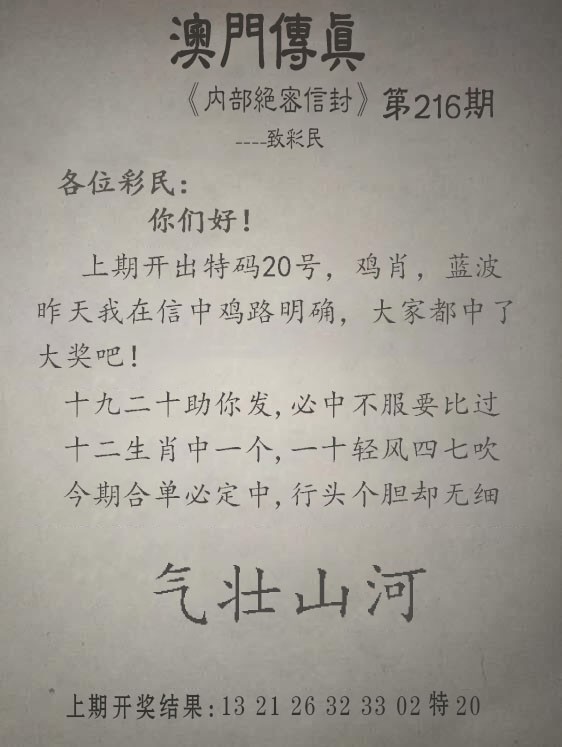 澳門傳眞
《内部絕密信封》第216期
----致彩民
各位彩民：
你们好！
上期开出特码20号，鸡肖，蓝波
昨天我在信中鸡路明确，大家都中了
大奖吧！
十九二十助你发,必中不服要比过
十二生肖中一个,一十轻风四七吹
今期合单必定中,行头个胆却无细
气壮山河
上期开奖结果:13 21 26 32 33 02特20